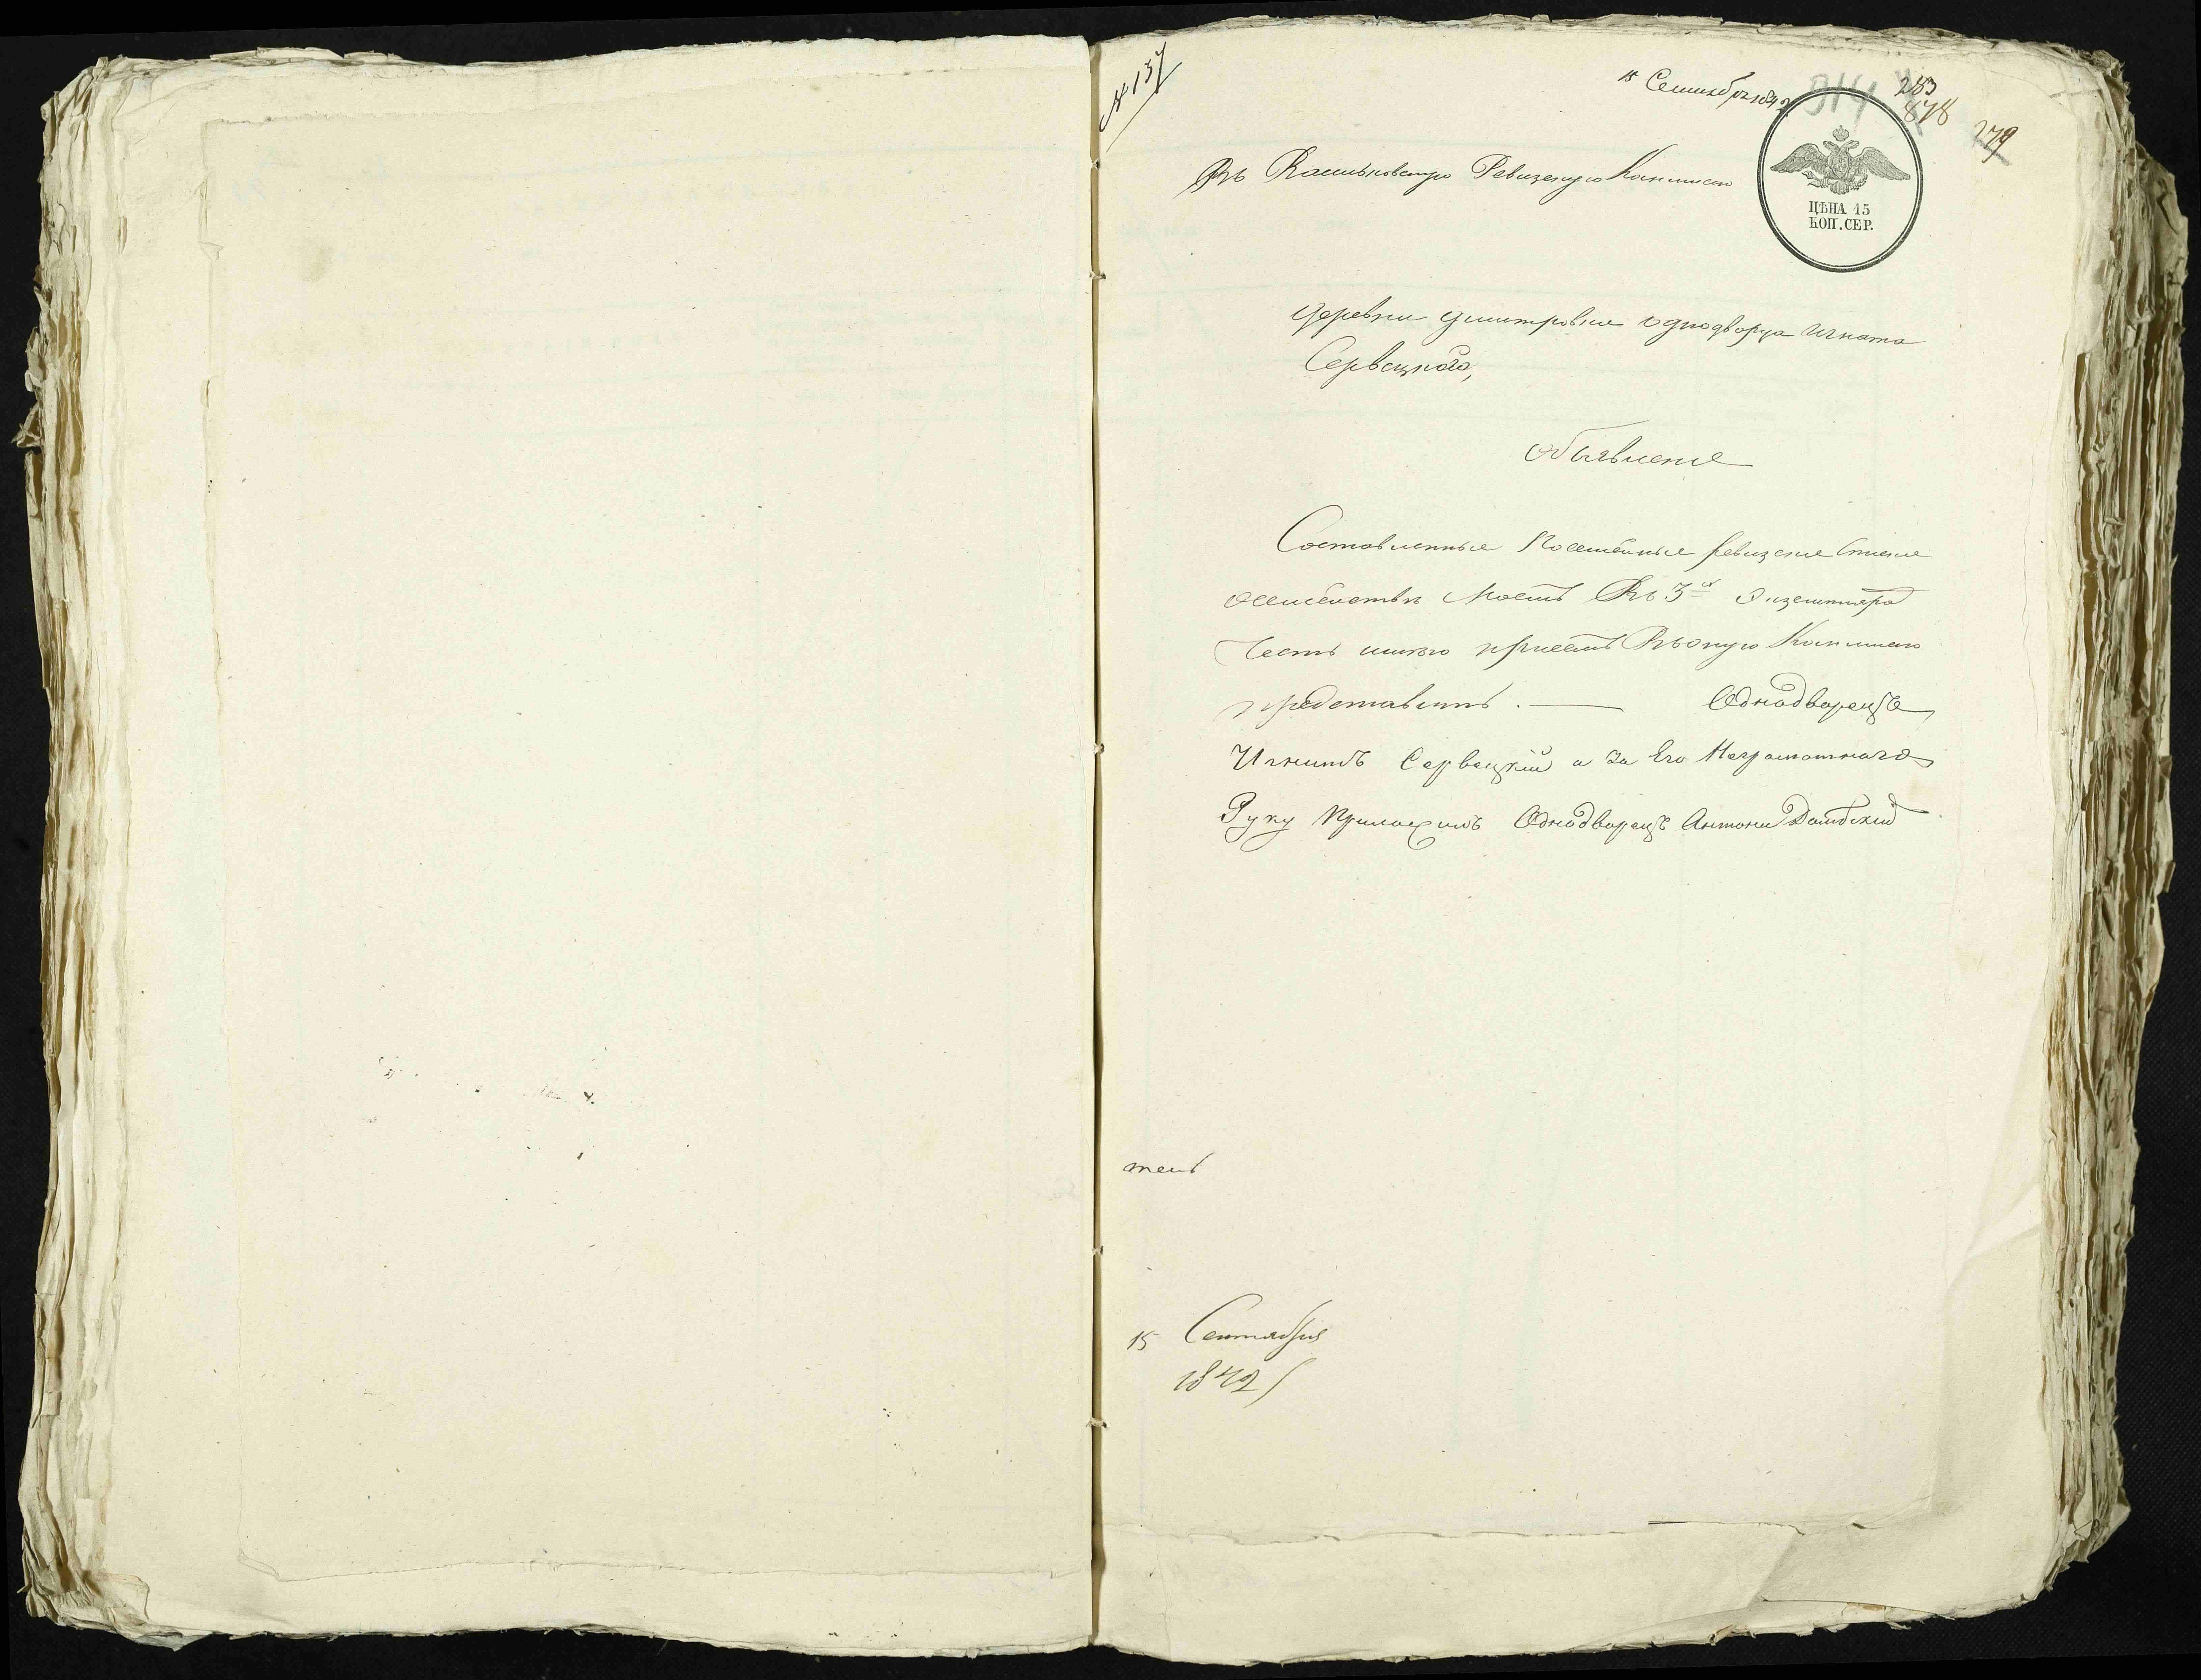 № 137
15 Сентября 1842
314
283
878
279
Въ Васильковскую Ревизскую Коммисію
ЦѢНА 15
КОП. СЕР.
Деревни Дмитровки однодворца Игната
Сервецкого,
Объявленіе
Составленные Посемейные ревизскіе
о семействѣ Моемъ Въ 3х Экземплярах
Честь имѣю присемъ Въ оную Коммисію
представить. — Однодворецъ
Игнатъ Сервецкій а за Его Неграмотнаго
Руку Приложилъ Однодворецъ Антони Домбскій
15 Сентября
1842